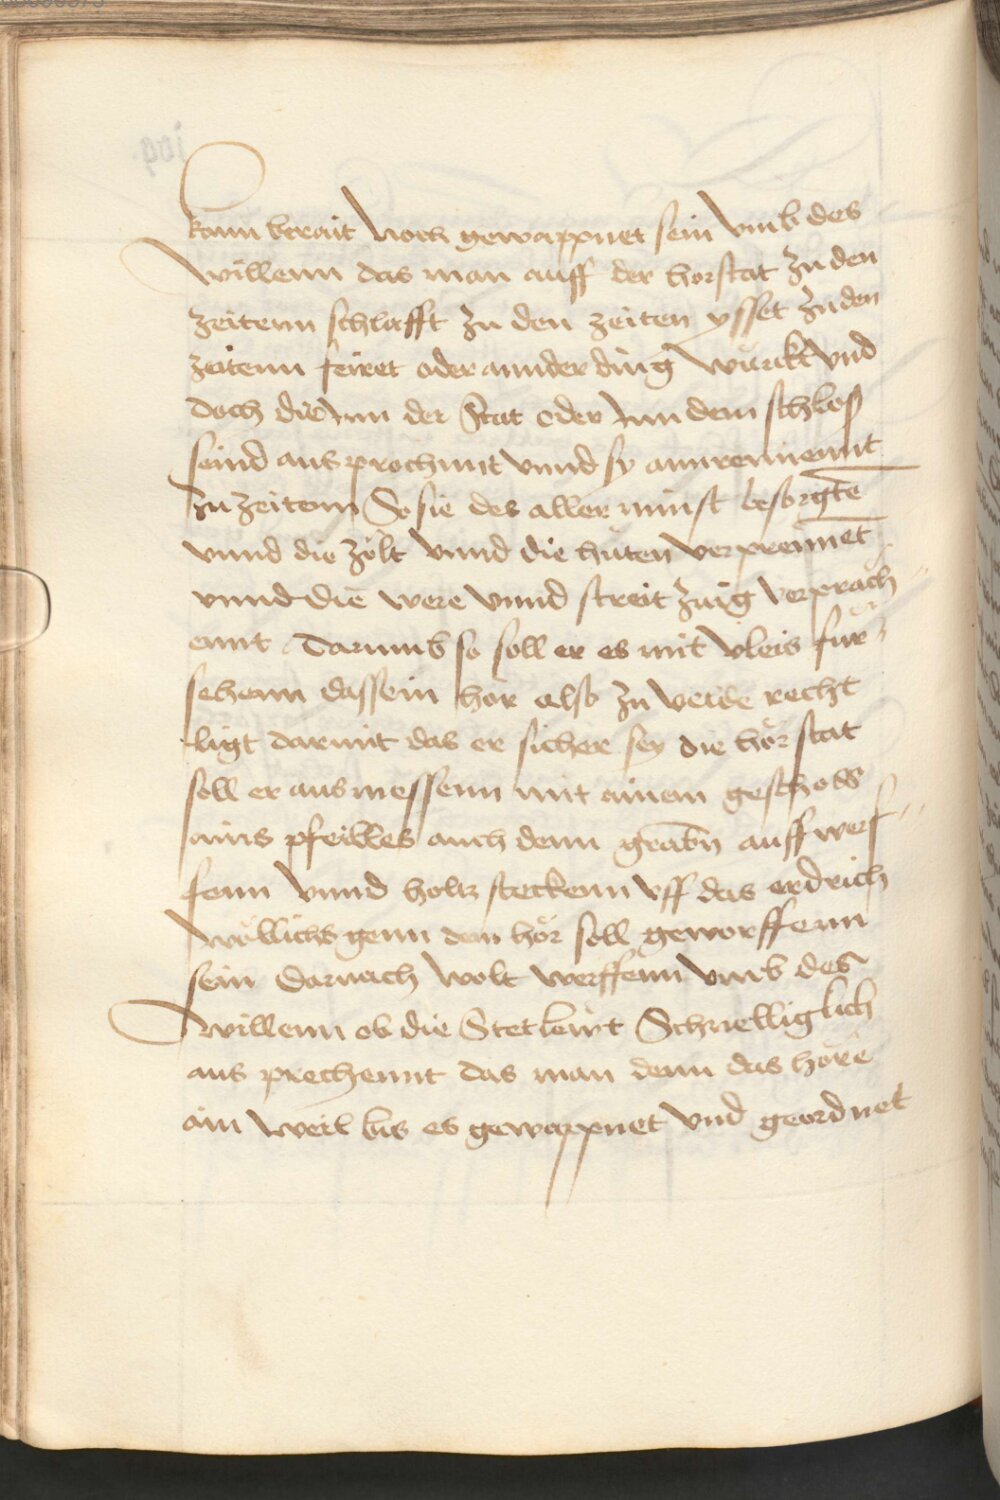 kann berait noch gewappnet sein vmb des
willenn das man auff der horstat zu den
zeitenn schlafft zu den zeiten ysset zu den
zeitenn feiret oder annder ding würckt vnd
doch die Inn der Stat oder Inn dem schlos
seind aus prechint vnnd sy annrennennt
zu zeitenn So sie des aller minst besorgtē
vnnd die zölt vnnd die hüten verprennēt
vnnd die were vnnd streit zuig verpräch
ennt Darumb so soll er es mit vleis für
sehenn das sein hör also zu velde recht
ligt darmit das er sicher sey die hör stat
soll er aus messenn mit ainem geschos
ains pfeilles auch denn grabn̄ auff werf
fenn vnnd holtz steckenn vff das erdrich
wöllichs genn dem hör soll geworffenn
sein darnach wolt werffenn vmb des
willenn ob die Stetlewt Schnelliglich
aus prechennt das man denn das höre
ain weil bis es gewappnet vnd geordnet